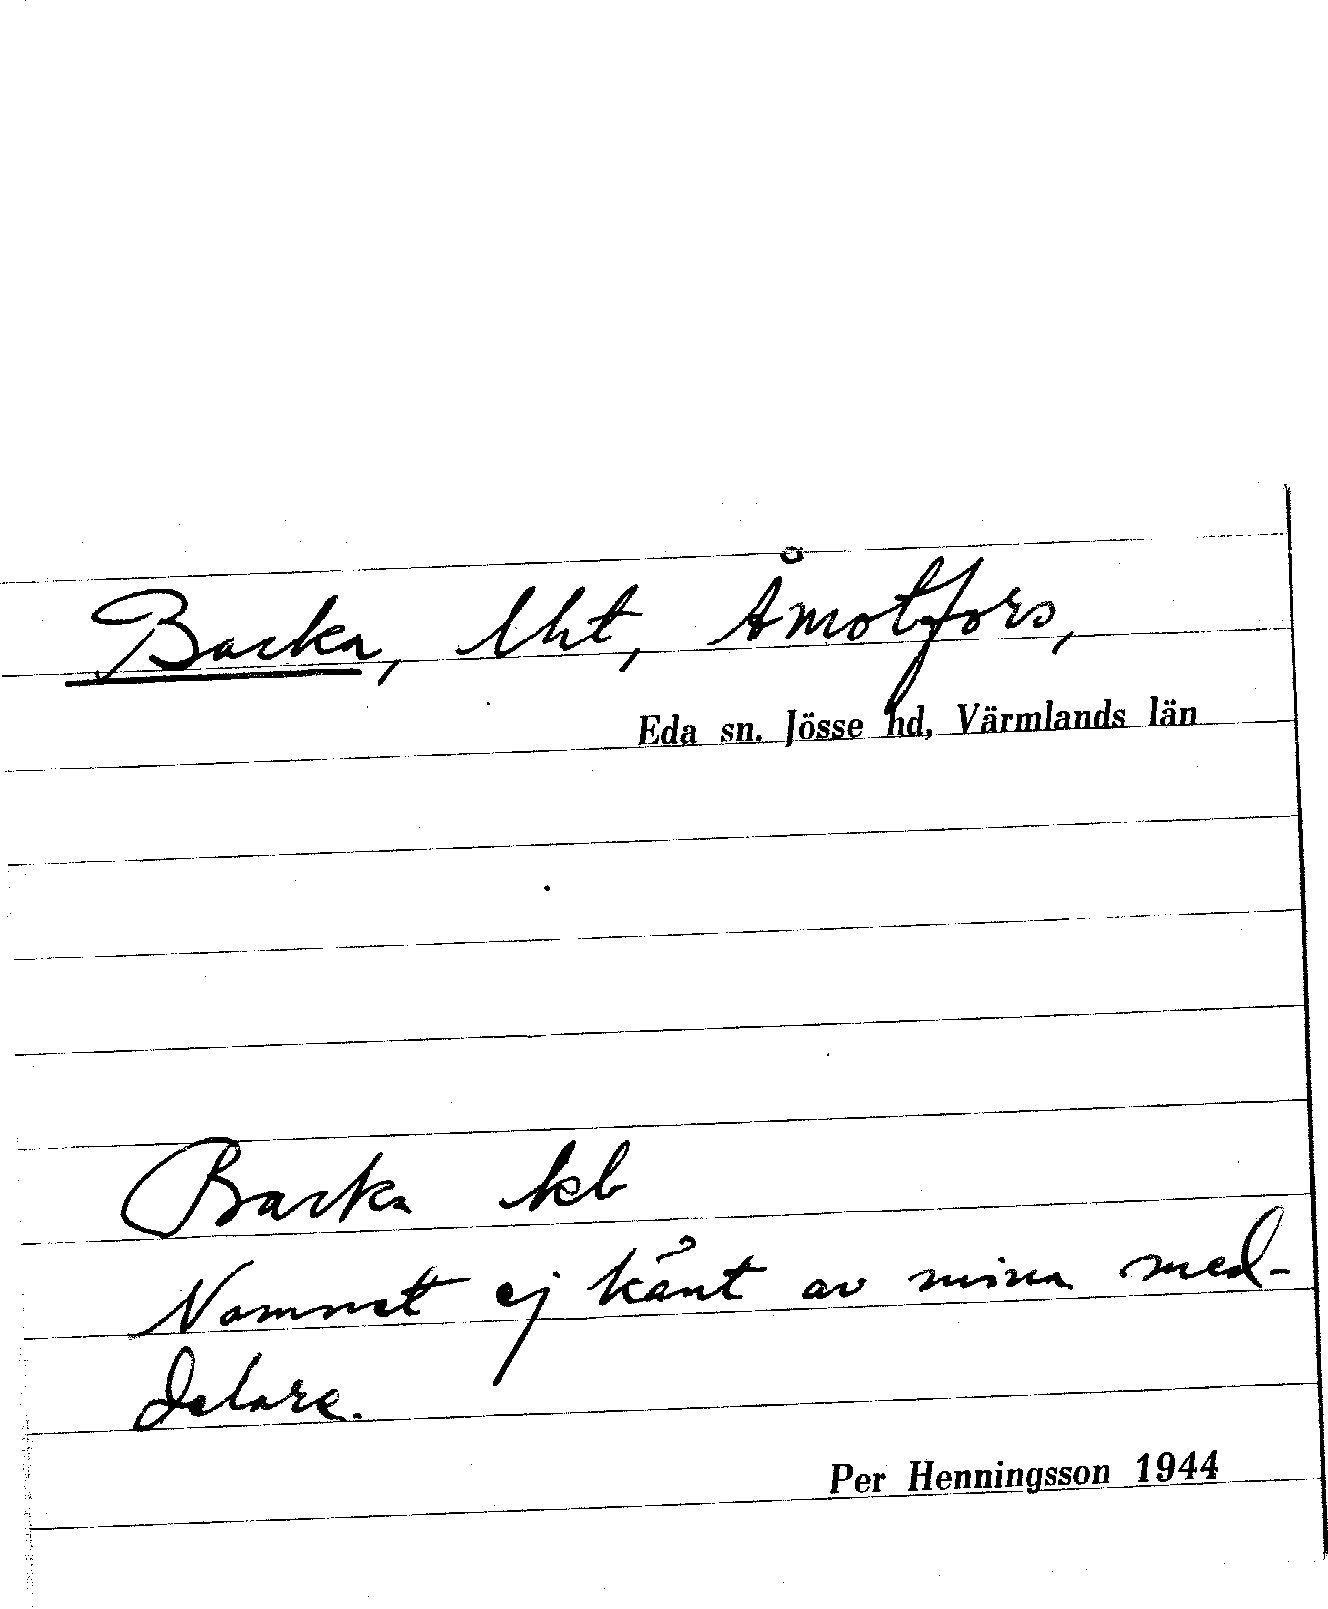 Backa, lht, Åmotfors,
Eda sn. Jösse hd, Värmlands län
Backa kb
Namnet ej känt av mina med-
delare.
Per Henningsson 1944